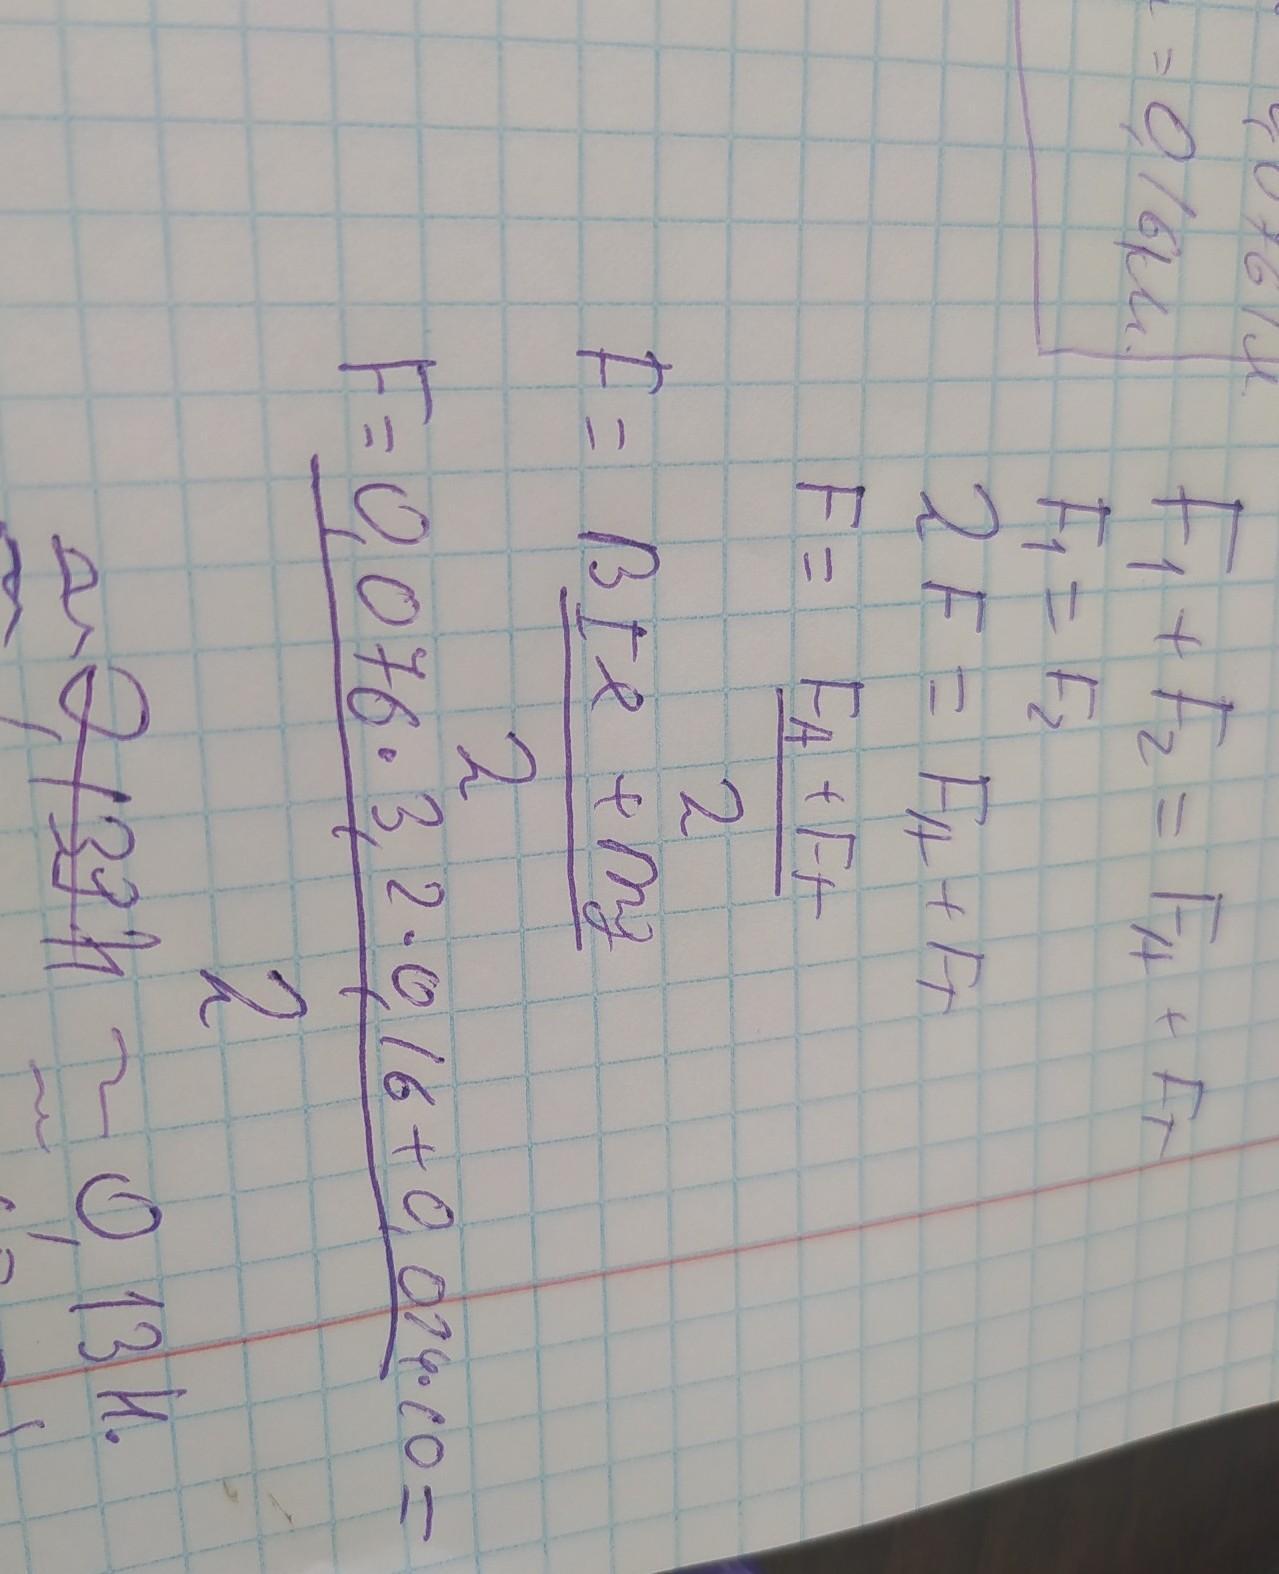 0,076 Тл
= 0,16м.
F₁ + F₂ = FA + Fт
F₁ = F₂
2F = FA + Fт
F = FA + Fт
2
F = BIl + mg
2
F = 0,076 · 3,2 · 0,16 + 0,024 · 10 =
2
≈ 0,13 Н.